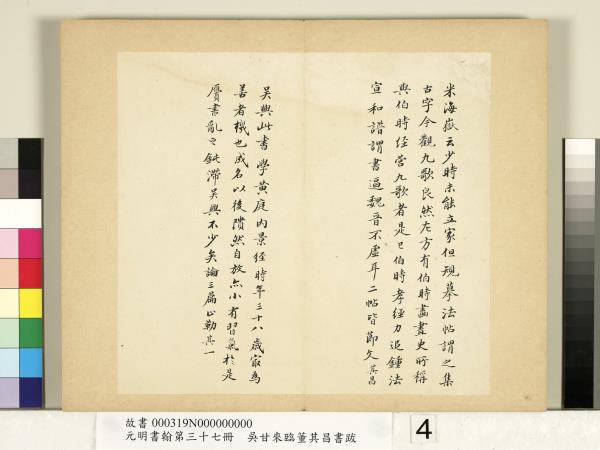 米海嶽云少時未能立家但規摹法帖謂之集
古字今觀九歌良然左方有伯時畵畫史所稱
與伯時經營九歌者是已伯時孝經力追鍾法
宣和譜謂書逼魏晉不虛耳二帖皆節文其昌
吳興此書學黃庭內景經時年三十八歲最為
善者機也成名以後隤然自放亦小有習氣於是
贋書亂之鈍滯吳興不少矣論三篇止勒其一
故書 000319N000000000
元明書翰第三十七冊 吳甘來臨董其昌書跋
4